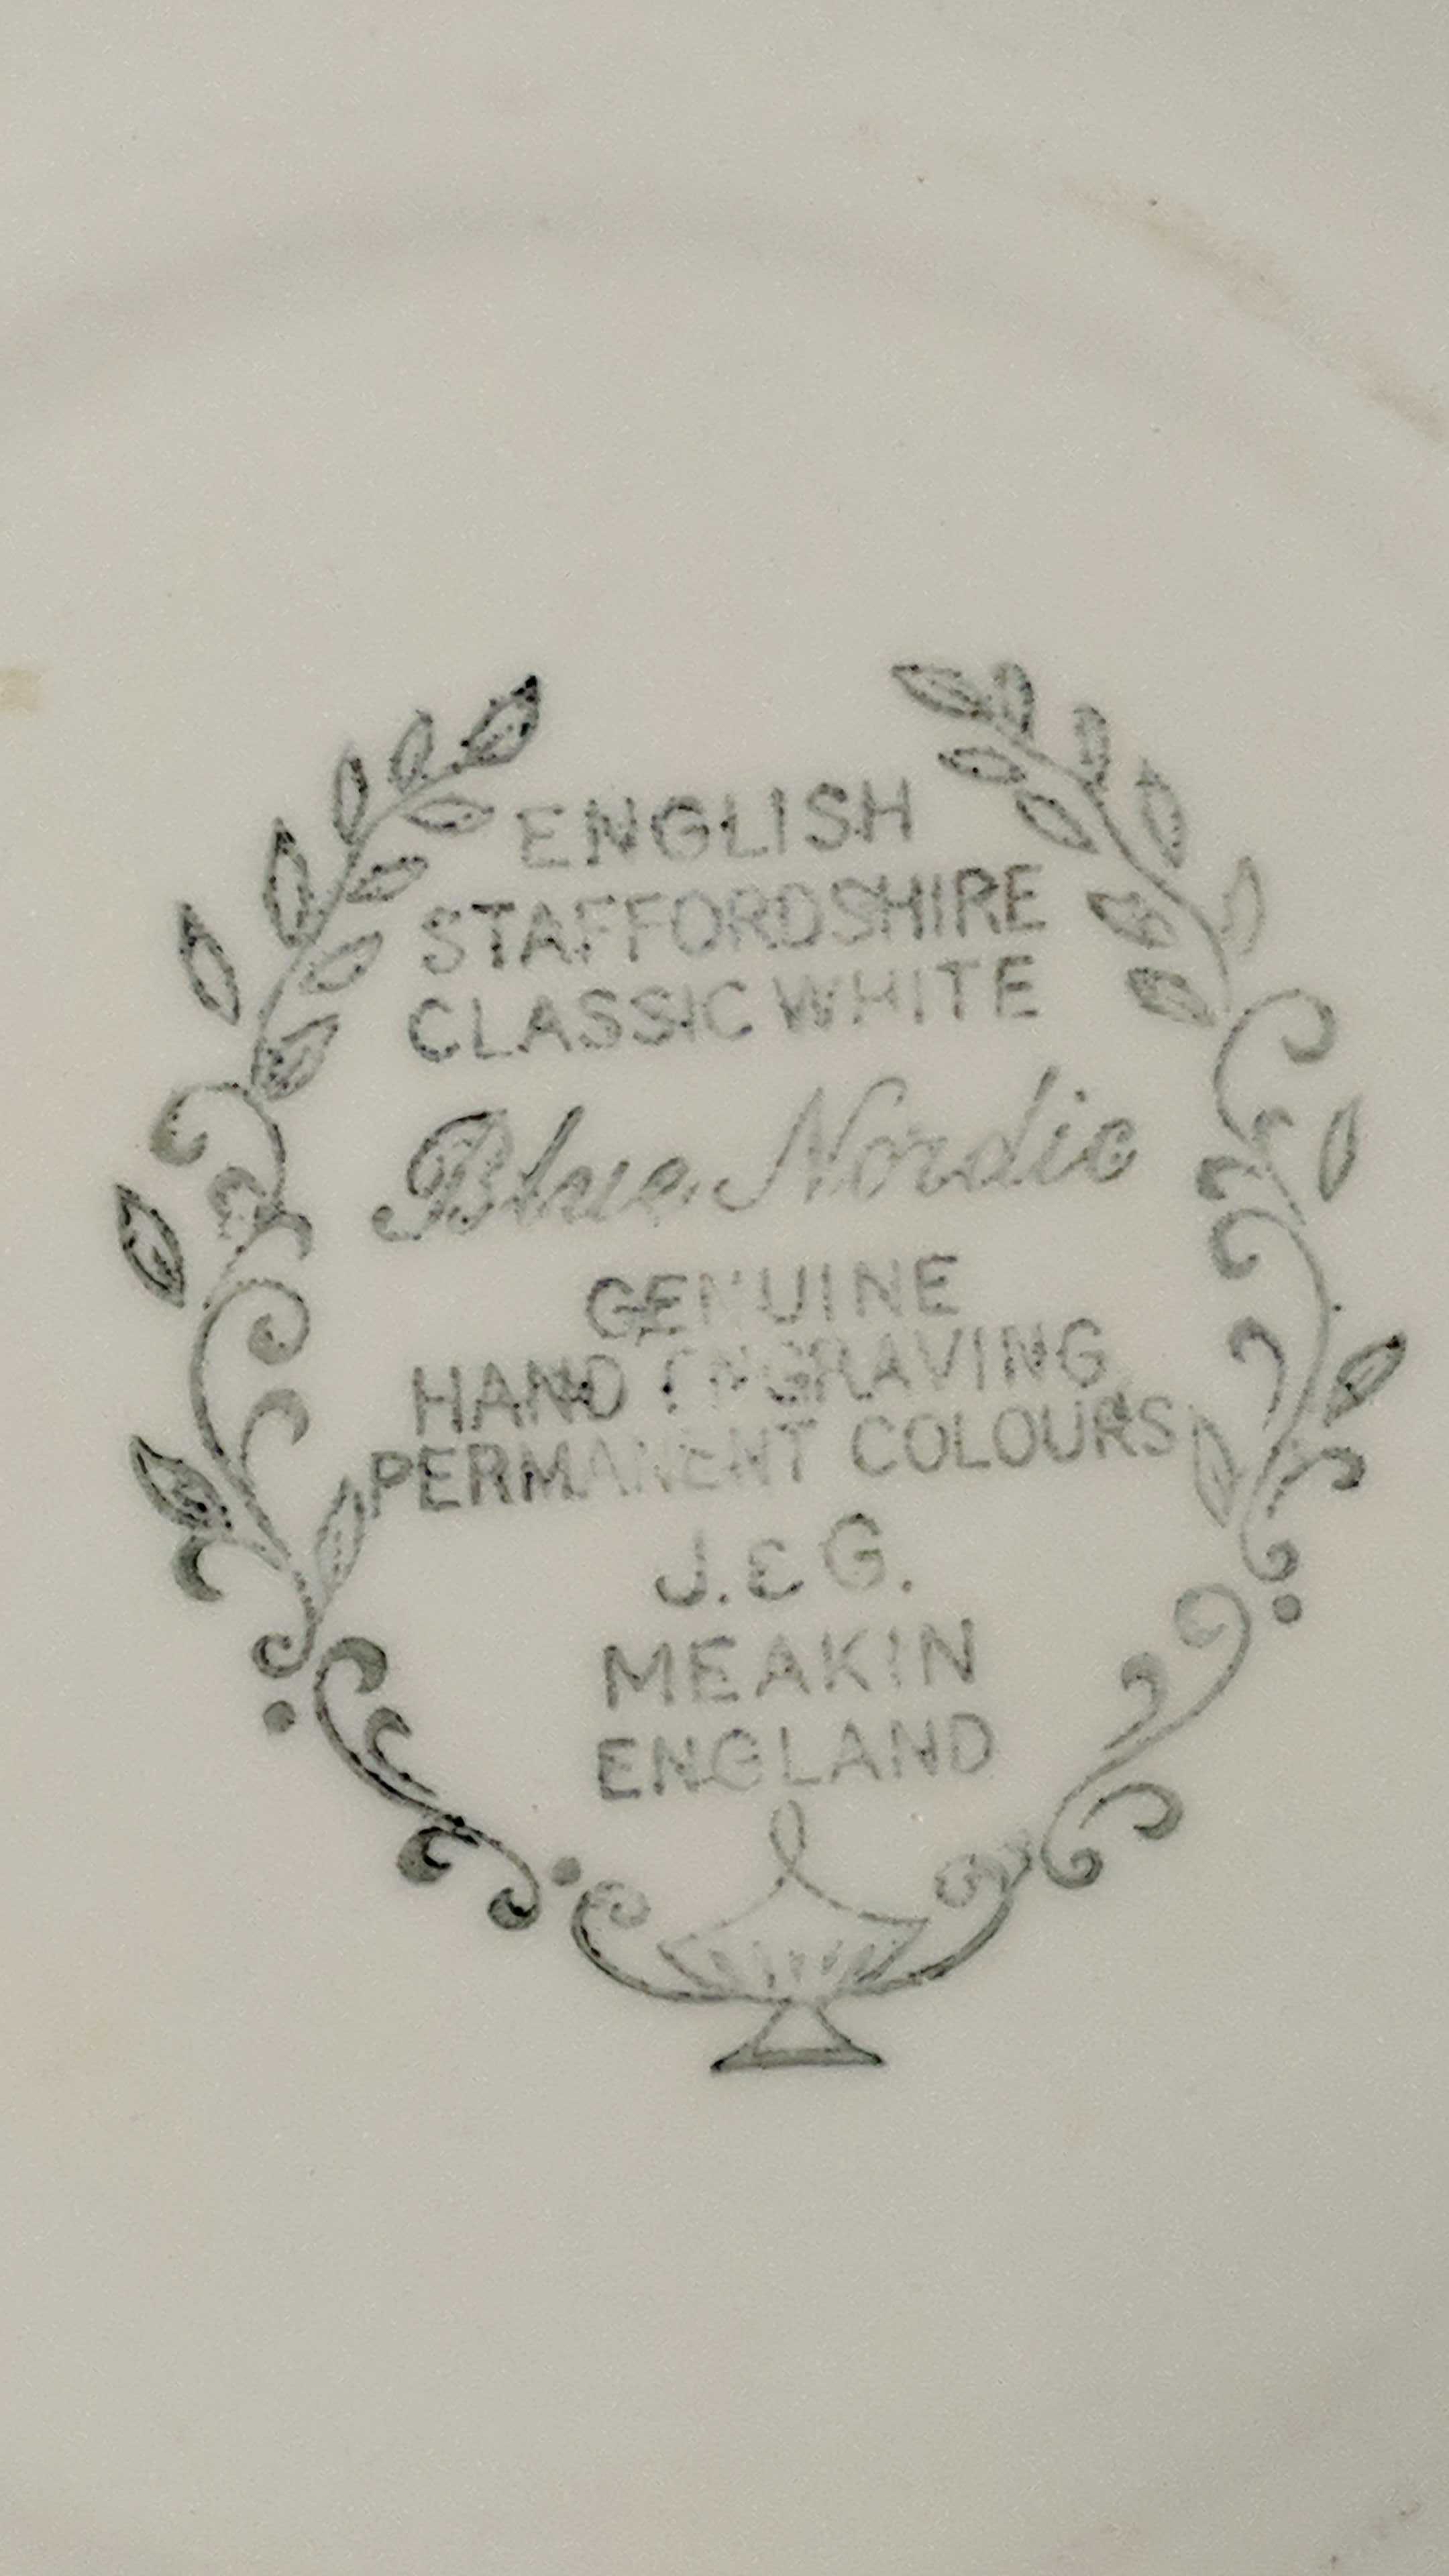 ENGLISH
STAFFORDSHIRE
CLASSIC WHITE
Blue Nordic
GENUINE
HAND ENGRAVING
PERMANENT COLOURS
J. & G.
MEAKIN
ENGLAND